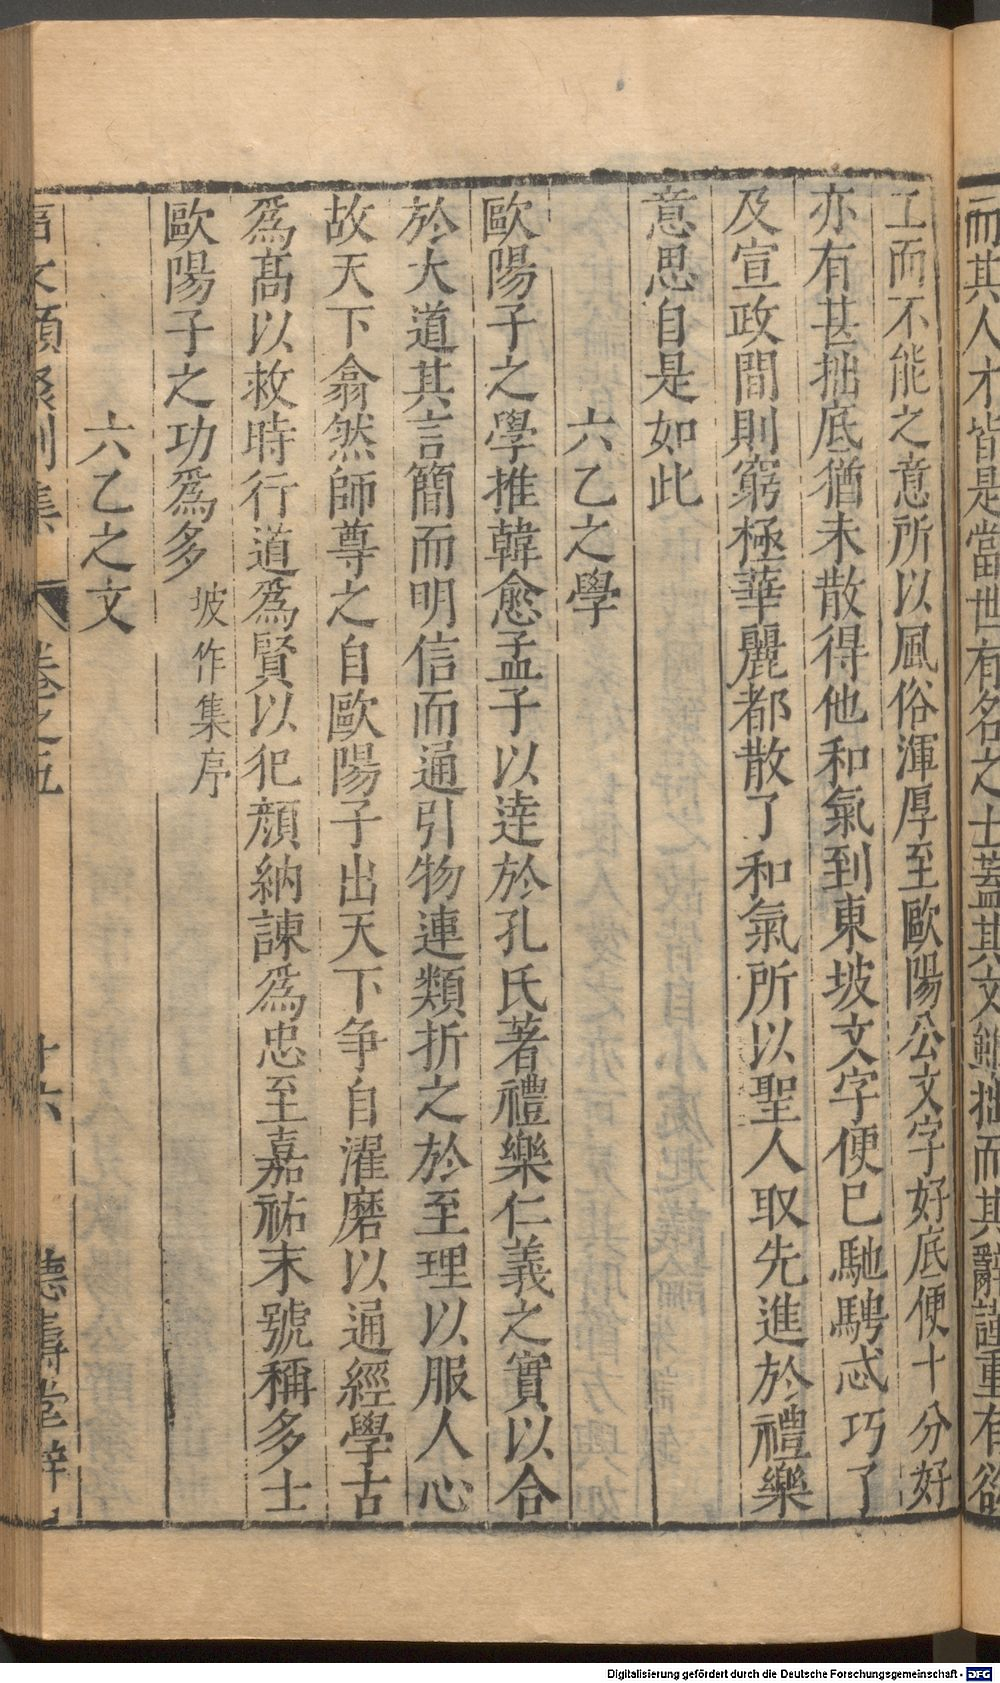 而其人才皆是當世有名之士蓋其文雖拙而其辭謹重有欲
工而不能之意所以風俗渾厚至歐陽公文字好底便十分好
亦有甚拙底猶未散得他和氣到東坡文字便已馳騁忒巧了
及宣政間則窮極華麗都散了和氣所以聖人取先進於禮樂
意思自是如此
六乙之學
歐陽子之學推韓愈孟子以逹於孔氏著禮樂仁義之實以合
於大道其言簡而明信而通引物連類折之於至理以服人心
故天下翕然師尊之自歐陽子出天下争自濯磨以通經學古
爲高以救時行道爲賢以犯顔納諫爲忠至嘉祐末號稱多士
歐陽子之功爲多 坡作集序
六乙之文
卷之五
十六
德壽堂梓
Digitalisierung gefördert durch die Deutsche Forschungsgemeinschaft - DFG